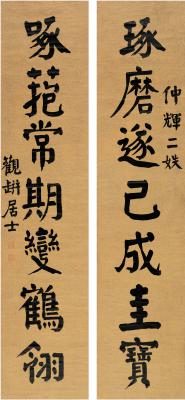 琢磨遂已成圭寶
仲輝二姪
啄菢常期變鶴翎
觀耕居士